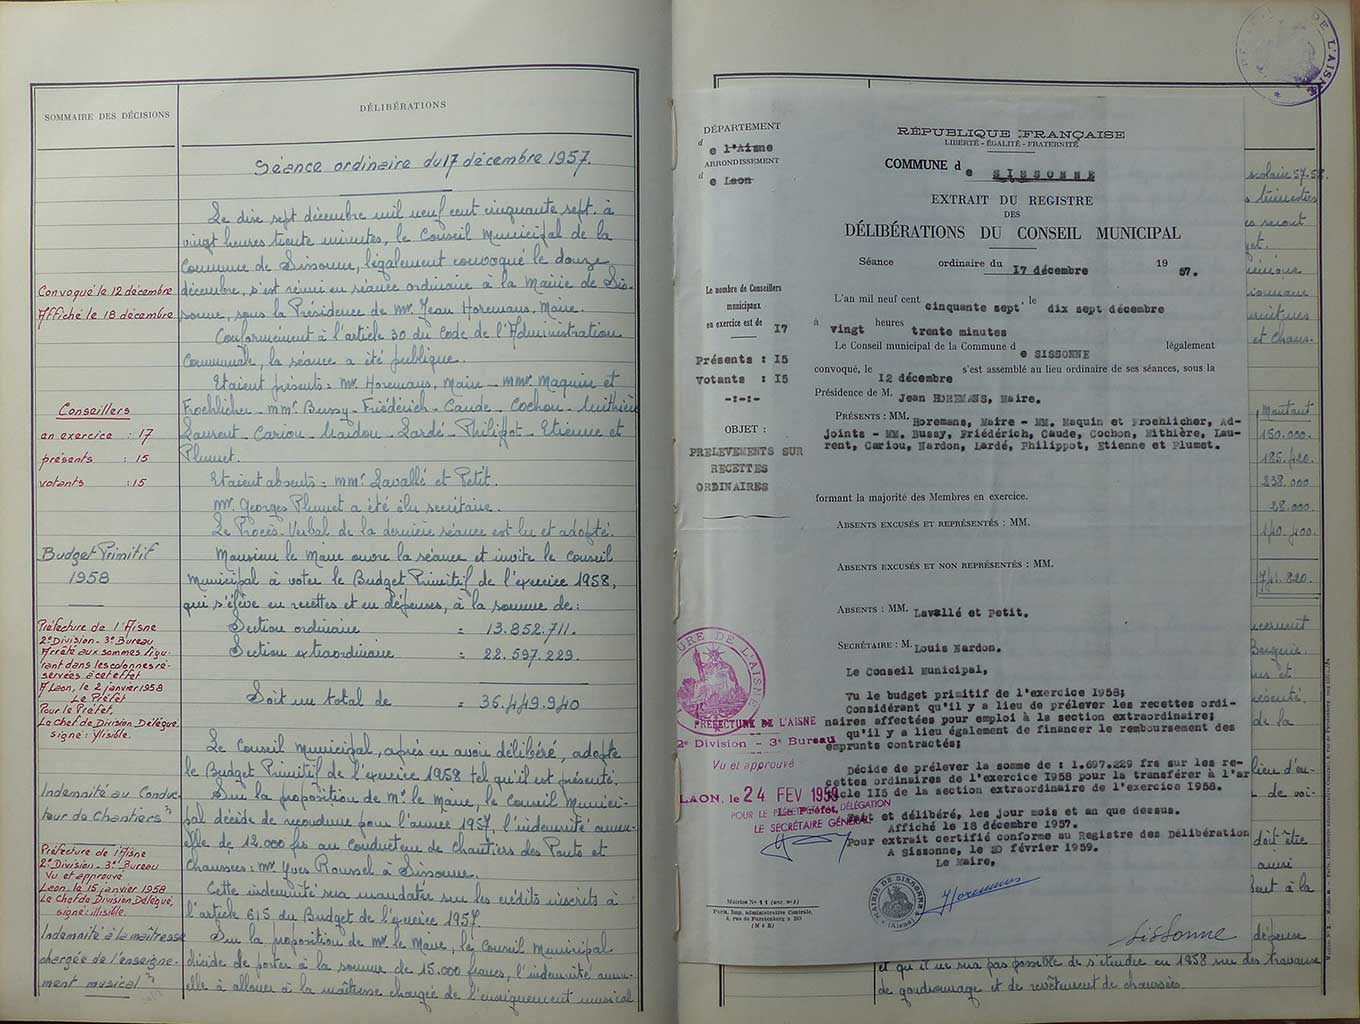 SOMMAIRE DES DÉCISIONS
DÉLIBÉRATIONS
Séance ordinaire du 17 décembre 1957.
Le dix sept décembre mil neuf cent cinquante sept, à
vingt heures trente minutes, le Conseil Municipal de la
Commune de Sissonne, légalement convoqué le douze
décembre, s'est réuni en séance ordinaire à la Mairie de Sis-
sonne, sous la Présidence de Mr. Jean Horemans, Maire.
Conformément à l'article 30 du Code de l'Administration
Communale, la séance a été publique.
Etaient présents = Mr Horemans, Maire - MMrs Maquin et
Froehlicher - MMrs Bussy - Friédérich - Caude - Cochon - Mithière
Laurent - Cariou - Nardon - Lardé - Philippot - Etienne et
Plumet.
Etaient absents = MMrs Lavallé et Petit.
Mr. Georges Plumet a été élu secrétaire.
Le Procès-Verbal de la dernière séance est lu et adopté.
Monsieur le Maire ouvre la séance et invite le Conseil
Municipal à voter le Budget Primitif de l'exercice 1958,
qui s'élève en recettes et en dépenses, à la somme de :
Section ordinaire = 13.852.711.
Section extraordinaire = 22.597.229.
Soit un total de = 36.449.940
Le Conseil Municipal, après en avoir délibéré, adopte
le Budget Primitif de l'exercice 1958 tel qu'il est présenté.
Sur la proposition de Mr le Maire, le Conseil Munici-
pal décide de reconduire pour l'année 1957, l'indemnité annu-
elle de 12.000 frs au Conducteur de chantiers des Ponts et
Chaussées : Mr. Yves Roussel à Sissonne.
Cette indemnité sera mandatée sur les crédits inscrits à
l'article 615 du Budget de l'exercice 1957.
Sur la proposition de Mr le Maire, le Conseil Municipal
décide de porter à la somme de 15.000 francs, l'indemnité annu-
elle à allouer à la maîtresse chargée de l'enseignement musical
Convoqué le 12 décembre
Affiché le 18 décembre
Conseillers
en exercice : 17
présents : 15
votants : 15
Budget Primitif
1958
Préfecture de l'Aisne
2e Division - 3e Bureau
Arrêté aux sommes figu-
rant dans les colonnes ré-
servées à cet effet
A Laon, le 2 janvier 1958
Le Préfet
Pour le Préfet,
Le Chef de Division Délégué,
signé : illisible.
Indemnité au Conduc-
teur de Chantiers
Préfecture de l'Aisne
2e Division - 3e Bureau
Vu et approuvé
Laon, le 15 janvier 1958
Le Chef de Division Délégué,
signé : illisible.
Indemnité à la maîtresse
chargée de l'enseigne-
ment musical
DÉPARTEMENT
d e l'Aisne
ARRONDISSEMENT
d e Laon
RÉPUBLIQUE FRANÇAISE
LIBERTÉ - ÉGALITÉ - FRATERNITÉ
COMMUNE d e SISSONNE
EXTRAIT DU REGISTRE
DES
DÉLIBÉRATIONS DU CONSEIL MUNICIPAL
Séance ordinaire du 17 décembre 1957.
Le nombre de Conseillers
municipaux
en exercice est de 17
Présents : 15
Votants : 15
-:-:-
OBJET :
PRELEVEMENTS SUR
RECETTES
ORDINAIRES
L'an mil neuf cent cinquante sept, le dix sept décembre
à vingt heures trente minutes
Le Conseil municipal de la Commune d e SISSONNE légalement
convoqué, le 12 décembre s'est assemblé au lieu ordinaire de ses séances, sous la
Présidence de M. Jean HOREMANS, Maire.
PRÉSENTS : MM. Horemans, Maire - MM. Maquin et Froehlicher, Ad-
joints - MM. Bussy, Friédérich, Caude, Cochon, Mithière, Lau-
rent, Cariou, Nardon, Lardé, Philippot, Etienne et Plumet.
formant la majorité des Membres en exercice.
ABSENTS EXCUSÉS ET REPRÉSENTÉS : MM.
ABSENTS EXCUSÉS ET NON REPRÉSENTÉS : MM.
ABSENTS : MM. Lavallé et Petit.
SECRÉTAIRE : M. Louis Nardon.
Le Conseil Municipal,
Vu le budget primitif de l'exercice 1958;
Considérant qu'il y a lieu de prélever les recettes ordi-
naires affectées pour emploi à la section extraordinaire;
qu'il y a lieu également de financer le remboursement des
emprunts contractés;
Décide de prélever la somme de : 1.697.229 frs sur les re-
cettes ordinaires de l'exercice 1958 pour la transférer à l'ar
ticle 115 de la section extraordinaire de l'exercice 1958.
Fait et délibéré, les jour mois et an que dessus.
Affiché le 18 décembre 1957.
Pour extrait certifié conforme au Registre des Délibération
A Sissonne, le 20 février 1959.
Le Maire,
Horemans
MAIRIE DE SISSONNE
(Aisne)
PRÉFECTURE DE L'AISNE
2e Division - 3e Bureau
Vu et approuvé
LAON, le 24 FEV 1959
Le Préfet,
DÉLÉGATION
LE SECRÉTAIRE GÉNÉRAL
Mairies No 11
Paris, Imp. administrative Centrale,
8, rue de Furstenberg
Sissonne
DE L'AISNE
scolaire 57-58.
trimestres
seront
et Chaus-
Montant
150.000.
185.420.
238.000
28.000.
140.400.
741.820.
de la
de voi-
doit être
ainsi
à la
dépense
et qu'il ne sera pas possible de s'étendre en 1958 sur des travaux
de goudronnage et de revêtement de chaussées.